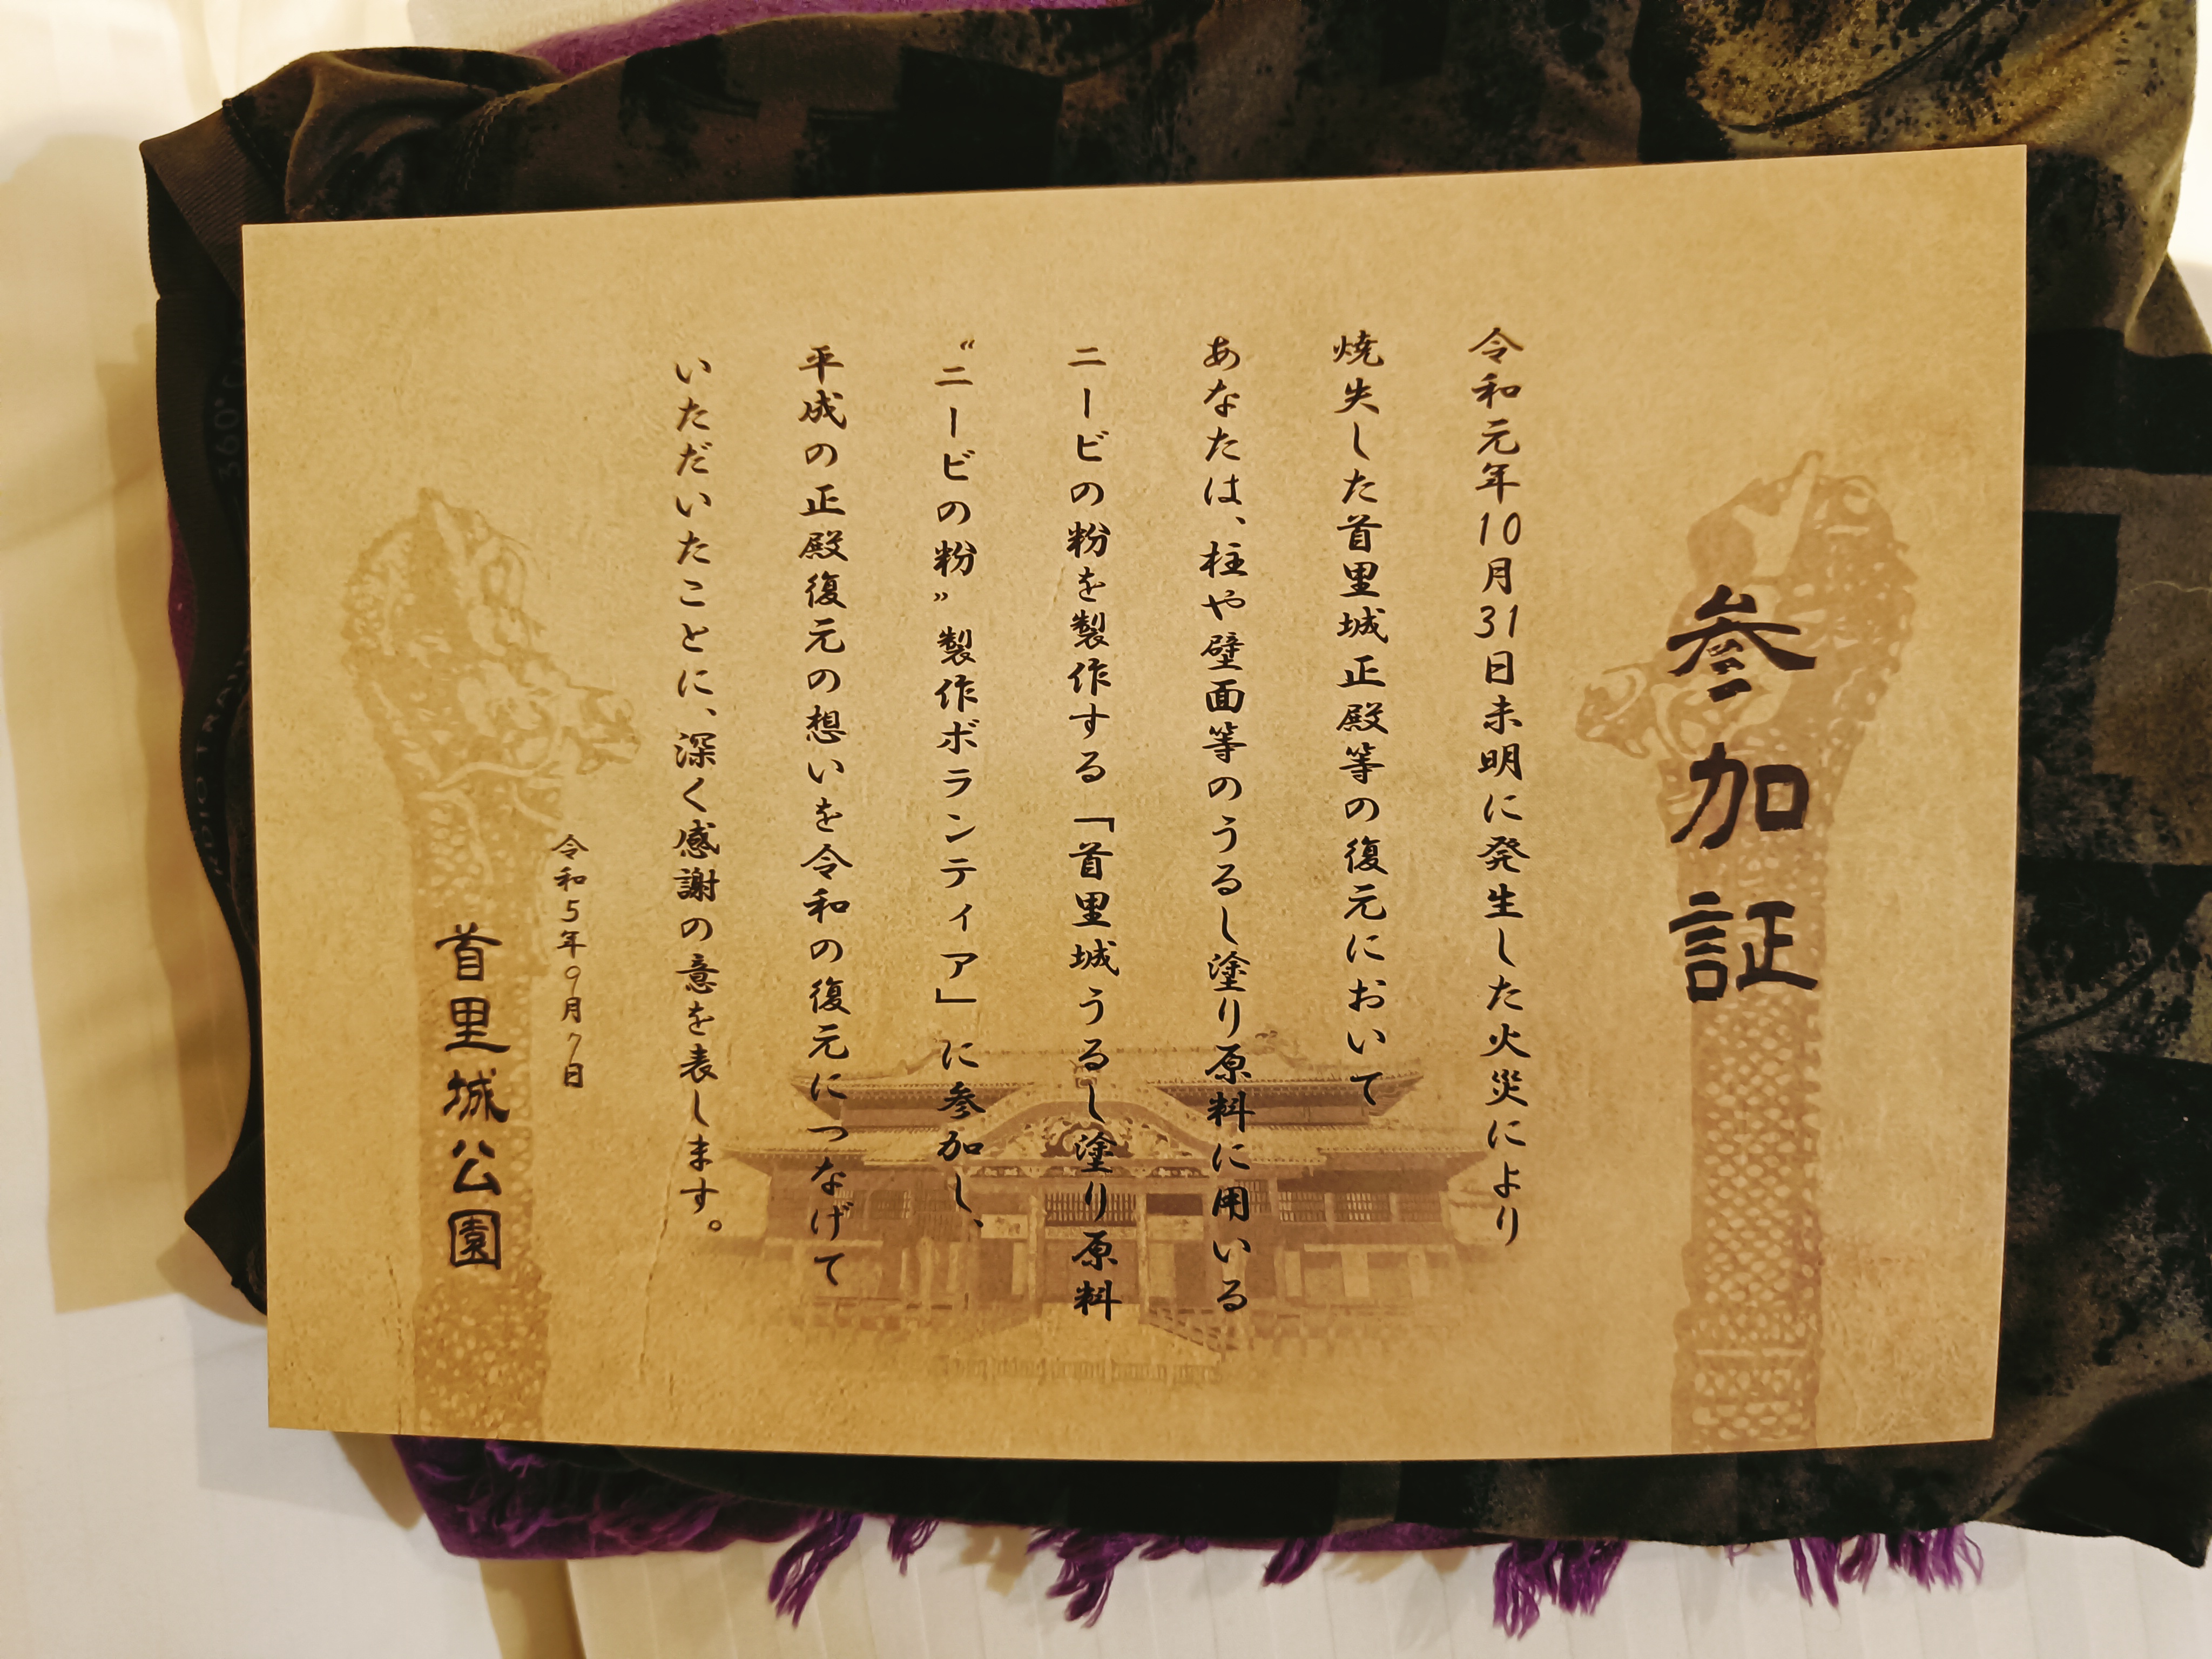 参加証
令和元年10月31日未明に発生した火災により
焼失した首里城正殿等の復元において
あなたは、柱や壁面等のうるし塗り原料に用いる
ニービの粉を製作する「首里城うるし塗り原料
“ニービの粉”製作ボランティア」に参加し、
平成の正殿復元の想いを令和の復元につなげて
いただいたことに、深く感謝の意を表します。
令和5年9月7日
首里城公園